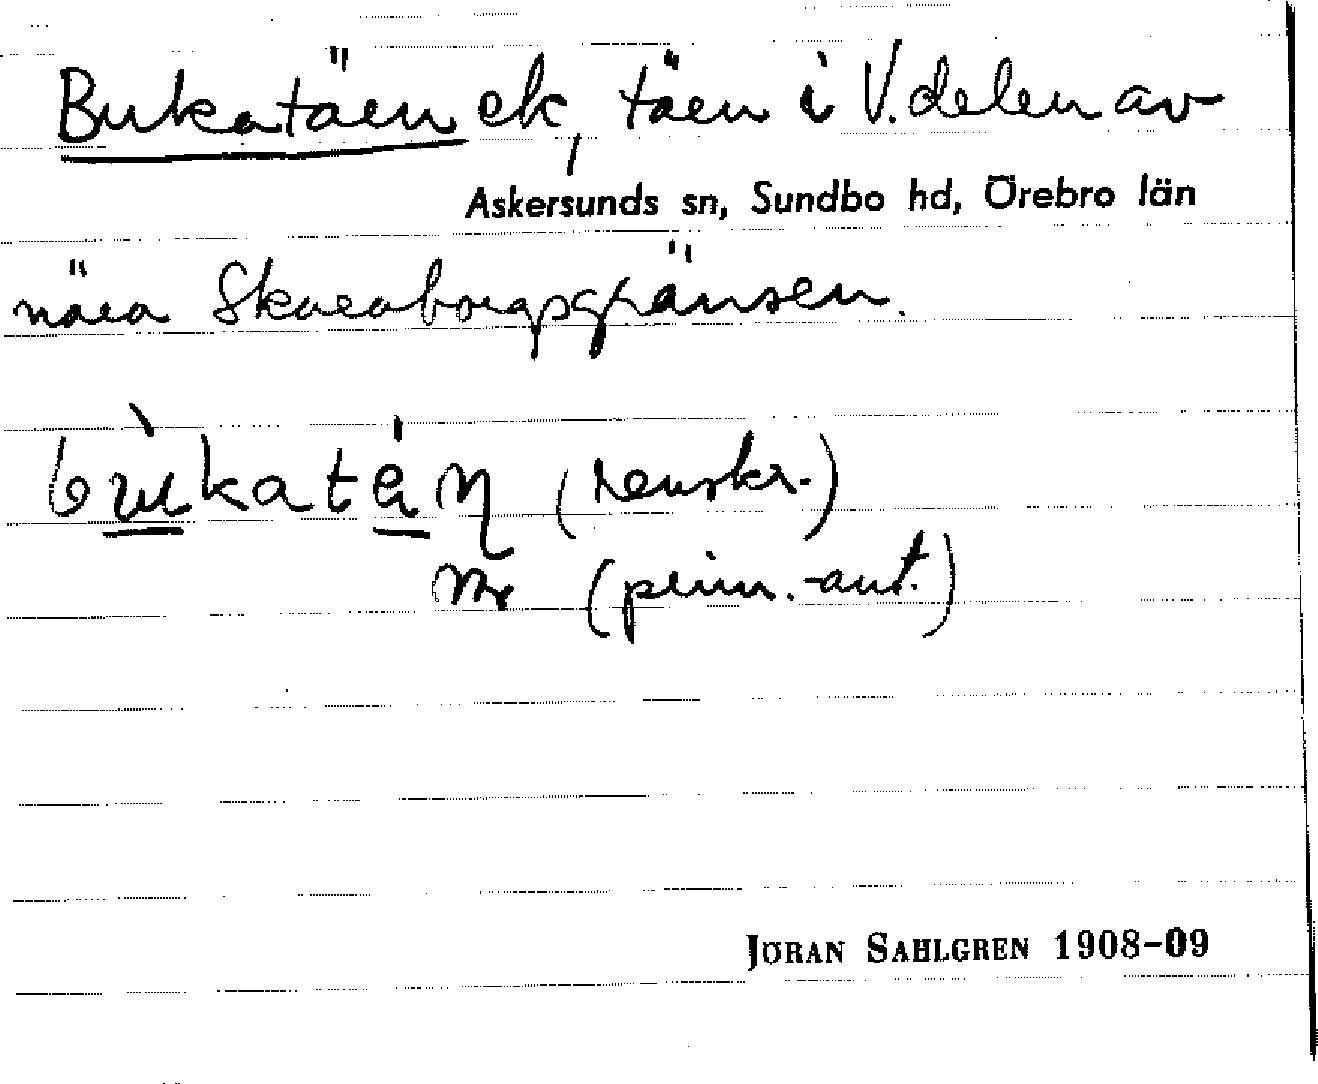 Bukatäen ek, täen i V. delen av
Askersunds sn, Sundbo hd, Örebro län
nära Skaraborgsgränsen.
(renskr.)
(prim.-ant.)
JÖRAN SAHLGREN 1908-09